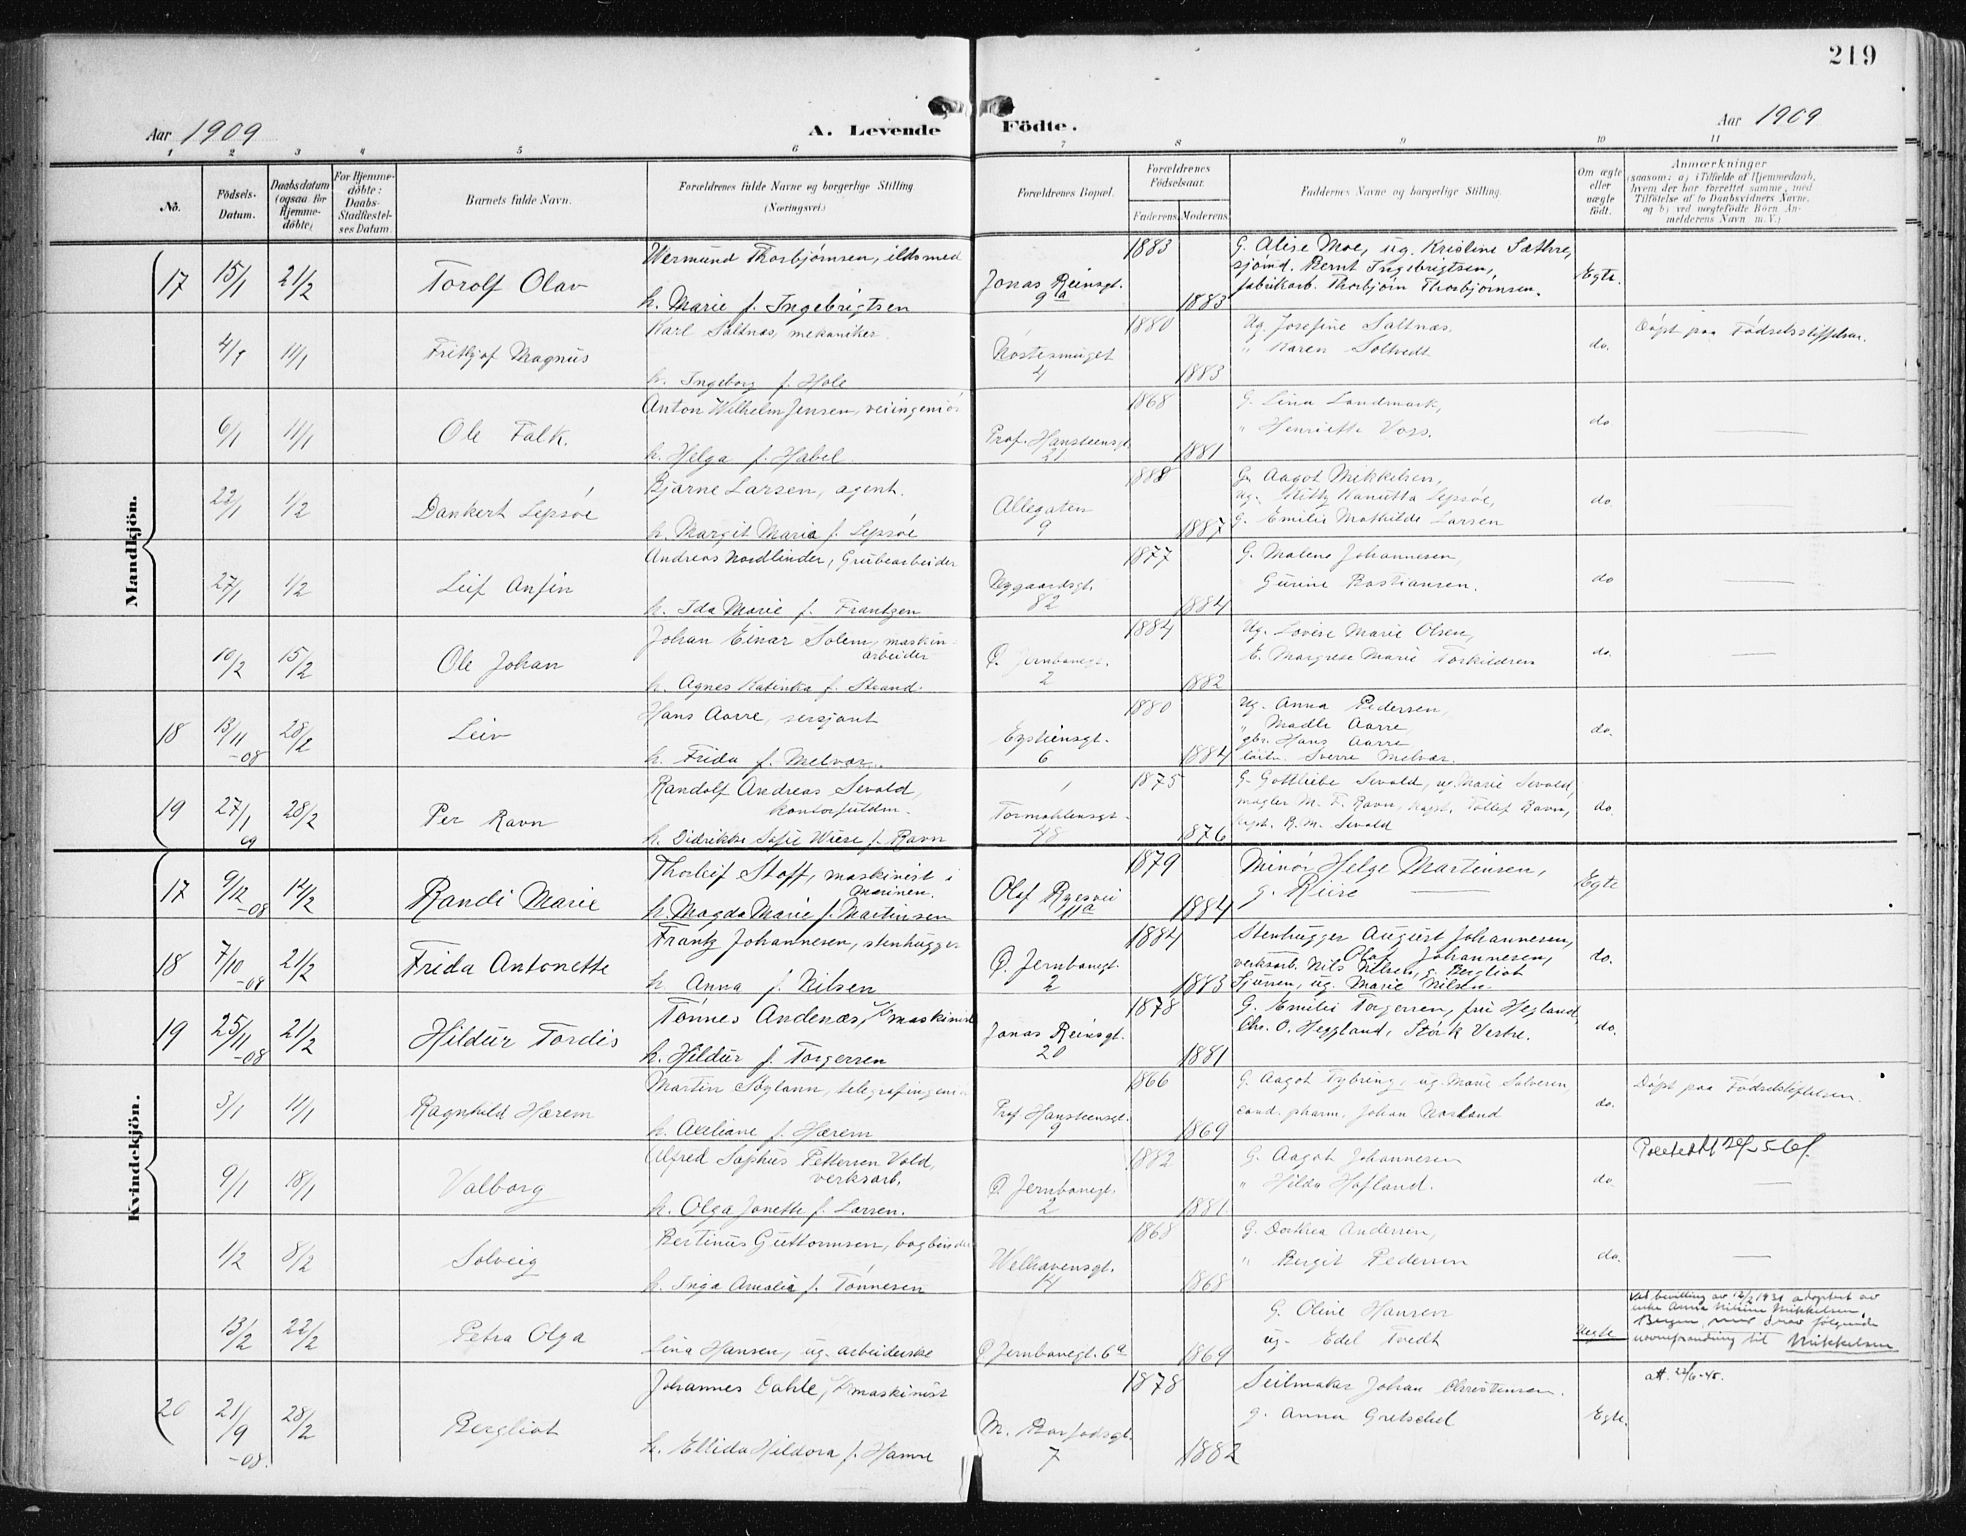 219
Aar 1909
A. Levende Födte.
Aar 1909
1 2 3 4 5 6 7 8 9 10 11
No.
Födsels-Datum.
Daabsdatum (ogsaa for Hjemme-döbte)
For Hjemme-döbte: Daabs-Stadfæstel-ses Datum.
Barnets fulde Navn.
Forældrenes fulde Navne og borgerlige Stilling. (Næringsvei.)
Forældrenes Bopæl.
Forældrenes Födselsaar.
Faderens
Moderens
Faddernes Navne og borgerlige Stilling.
Om ægte eller uægte födt.
Anmærkninger
(saasom: a) i Tilfælde af Hjemmedaab,
hvem der har forrettet samme, med
Tilföielse af to Daabsvidners Navne,
og b) ved uægtefödte Börn An-
melderens Navn m. V.)
Mandkjön.
17 15/1 21/2 Torolf Olav
Wermund Thorbjørnsen, ildsmed
h. Marie f. Ingebrigtsen
Jonas Reinsgt. 9a
1883 1883
G. Alise Moe, ug. Kristine Sæthre,
sjømd. Bernt Ingebrigtsen,
fabrikarb. Thorbjørn Thorbjørnsen.
Egte.
11/1 Fritjof Magnus
Karl Saltnæs, mekaniker.
h. Ingeborg f. Hole
Nøstesmuget 4
1880 1883
Ug. Josefine Saltnæs,
" Karen Soltvedt
do.
Døpt paa Fødselsstiftelsen.
6/1 11/1 Ole Falk.
Anton Wilhelm Jensen, veiingeniør
h. Helga f. Habel
Prof. Hansteensgt. 21
1868 1881
G. Lina Landmark,
" Henriette Voss.
do.
22/1 1/2 Dankert Lepsøe
Bjarne Larsen, agent.
h. Margit Maria f. Lepsøe
Allegaten 9
1888 1887
G. Aagot Mikkelsen,
ug. Kitty Kanutta Lepsøe,
G. Emilie Mathilde Larsen
do.
27/1 1/2 Leif Anfin
Andreas Nordlinder, Grubearbeider
h. Ida Marie f. Frantzen
Nygaardsgt. 82
1877 1884
G. Malene Johannesen,
Gurine Bastiansen.
do
10/2 15/2 Ole Johan
Johan Einar Solem, maskin-
arbeider
h. Agnes Katinka f. Strand.
Ø. Jernbanegt. 2
1884 1882
Ug. Lovise Marie Olsen,
E. Margrete Marie Torkildsen
do.
18 13/11 -08 28/2 Leiv
Hans Aarre, sersjant
h. Frida f. Melvær.
Eystiensgt. 6
1880 1884
Ug. Anna Pedersen,
" Madli Aarre,
gbr. Hans Aarre
løitn. Sverre Melvær.
do.
19 27/1 09 28/2 Per Ravn
Randolf Andreas Sevald,
kontorfuldm.
h. Didrikke Sofie Wiese f. Ravn
Tormøhlensgt. 48
1875 1876
G. Gottliebe Sevald, ug. Marie Sevald,
mægler M. F. Ravn, kapt. Tollef Ravn,
kapt. R. M. Sevald
do.
Kvindekjön.
17 9/12 -08 14/2 Randi Marie
Thorleif Stoff, maskinist i
marinen.
h. Magda Marie f. Martinsen
Olaf Ryesvei 11a
1879 1884
Minør Helge Martinsen,
g. Riise
Egte
18 7/10 -08 21/2 Frida Antonette
Frantz Johannesen, stenhugger
h. Anna f. Nilsen
Ø. Jernbanegt. 2
1884 1883
Stenhugger August Johannesen,
Olaf Johannesen,
verksarb. Nils Nilsen, g. Bergliot
Sjursen, ug. Marie Nilsen.
do.
19 25/11 -08 21/2 Hildur Tordis
Tønnes Andenæs, maskinist
h. Hildur f. Torgersen
Jonas Reinsgt. 20
1878 1881
G. Emilie Torgersen, fru Hegland,
Chr. O. Heggland, Størk Vestre.
do.
3/1 11/1 Ragnhild Hærem
Martin Søyland, telegrafingeniør
h. Axeliane f. Hærem
Prof Hansteensgt. 9
1866 1869
G. Aagot Fybring, ug. Marie Solveren,
cand. pharm. Johan Norland
do.
Døpt paa Fødselsstiftelsen.
9/1 18/1 Valborg
Alfred Sophus Pettersen Vold,
verksarb.
h. Olga Jonette f. Larsen.
Ø. Jernbanegt. 2
1882 1881
G. Aagot Johannesen
" Hilda Hofland.
do.
1/2 8/2 Solveig
Bertinus Guttormsen, bogbinder
h. Inga Amalia f. Tønnesen
Welhavensgt. 14
1868 1868
G. Dorthea Andersen,
" Bergit Pedersen
do.
13/2 22/2 Petra Olga
Lina Hansen, ug. arbeiderske
Ø. Jernbanegt. 6a
1869
G. Oline Hansen
ug. Edel Tvedt
Uegte
Ved bevilling av 12/2 1931 adoptert av
enke Anna Nilsine Mikkelsen,
Bergen, med derav følgende
navneforandring til Mikkelsen
20 21/9 -08. 28/2 Bergliot
Johannes Dahle, maskinist
h. Ellida Hildora f. Hamre
M. Barfodsgt. 7
1878 1882
Seilmaker Johan Christensen.
g. Anna Gretschel
Egte.
att. 22/6-45.